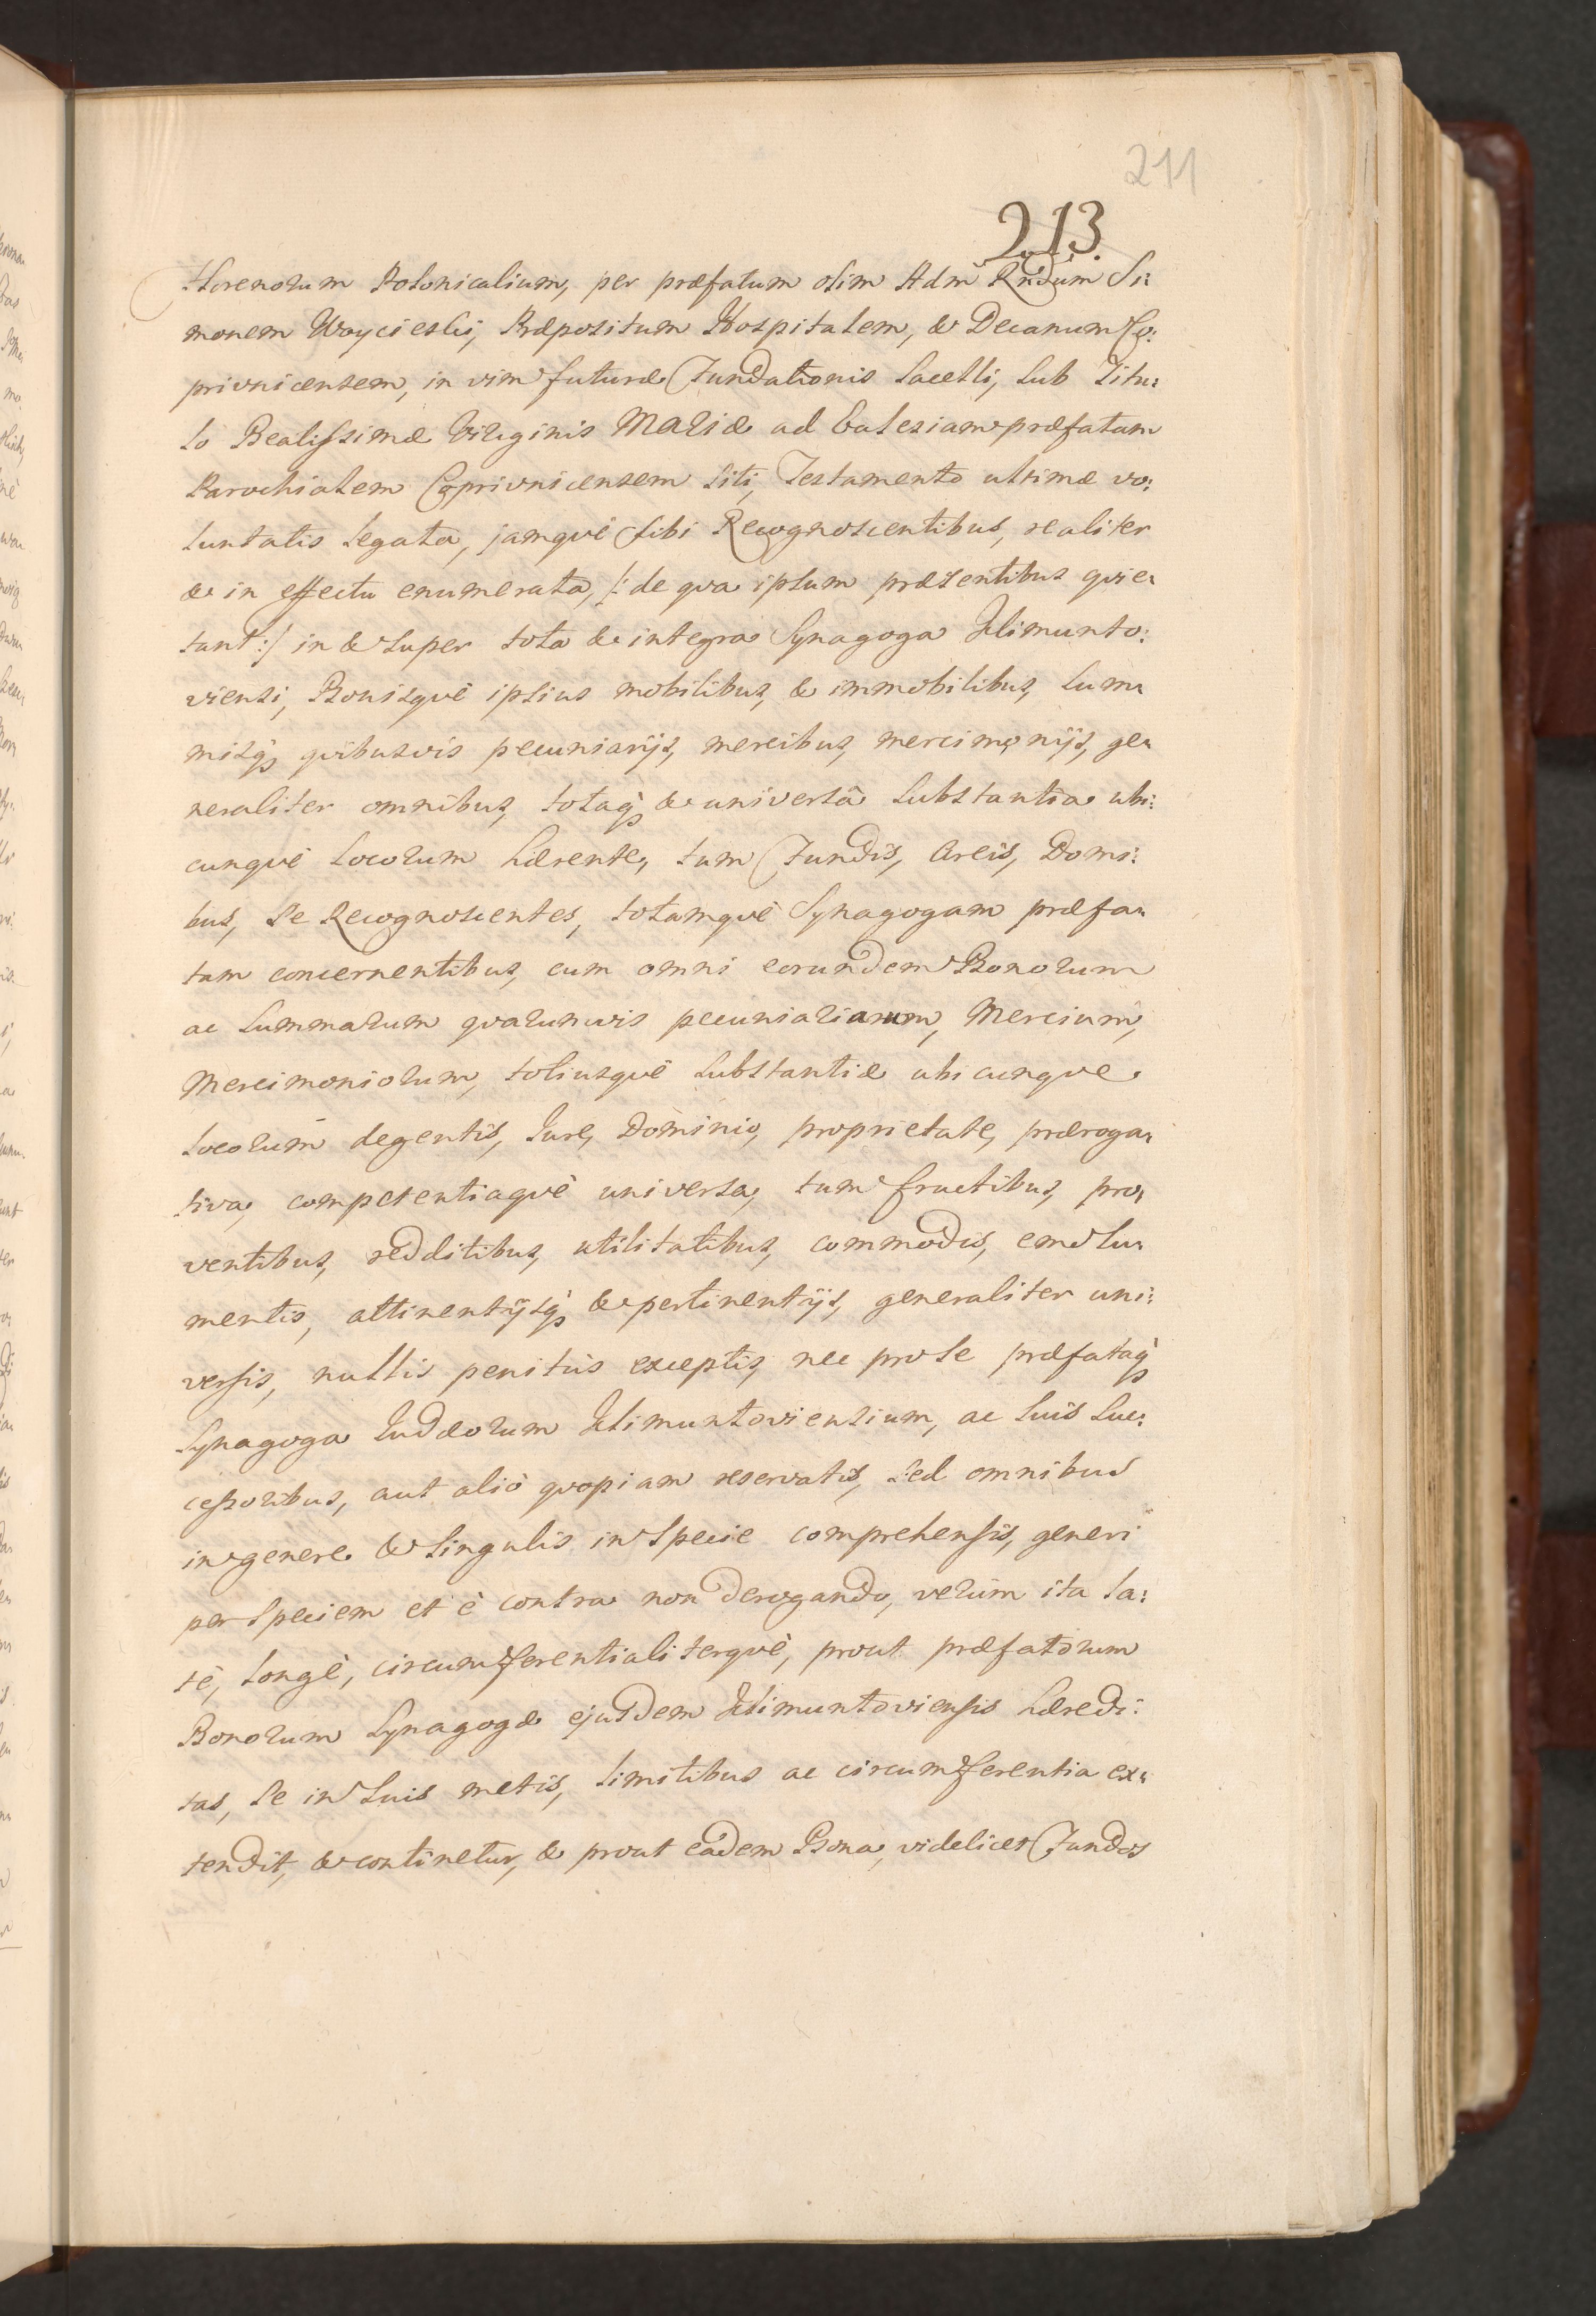 211
213.
Florenorum Polonicalium, per præfatum olim Adm Rndum Si:
monem Woycieski, Præpositum Hospitalem, & Decanum Co:
privnicensem, in vim futuræ Fundationis Sacelli, sub Titu:
lo Beatissimæ Virginis MARIÆ ad Eclesiam præfatam
Parochialem Coprivnicensem siti, Testamento ultimæ vo:
luntatis legata, jamqvè sibi Recognoscentibus, realiter
& in effectu enumerata, /: de qva ipsum præsentibus qvie:
tant :/ in & super tota & integra Synagoga Klimunto:
viensi, Bonisqvè ipsius mobilibus, & immobilibus, sum:
misq; qvibusvis pecuniarijs, mercibus, mercimonijs, ge:
neraliter omnibus, totaq; & universâ substantia ubi:
cunqvè locorum hærente, tum Fundis, Areis, Domi:
bus, se Recognoscentes, totamqvè Synagogam præfa:
tam concernentibus, cum omni eorundem Bonorum
ac Summarum qvarumvis pecuniariarum, Mercium,
Mercimoniorum, totiusqvè substantiæ ubicunqve
locorum degentis, Jure, Dominio, proprietate, præroga:
tiva, competentiaqvè universa, tum fructibus, pro:
ventibus, redditibus, utilitatibus, commodis, emolu:
mentis, attinentijsq; & pertinentijs, generaliter uni:
versis, nullis penitùs exceptis, nec pro se præfataq;
Synagoga Judæorum Klimuntoviensium, ac suis Suc:
cessoribus, aut aliò qvopiam reservatis, sed omnibus
in genere & singulis in specie comprehensis, generi
per speciem et è contra non derogando, verùm ita la:
tè, longè, circumferentialiterqvè, prout præfatorum
Bonorum Synagogæ ejusdem Klimuntoviensis hæredi:
tas, se in suis metis, limitibus ac circumferentia ex:
tendit, & continetur, & prout eadem Bona, videlicet Fundos